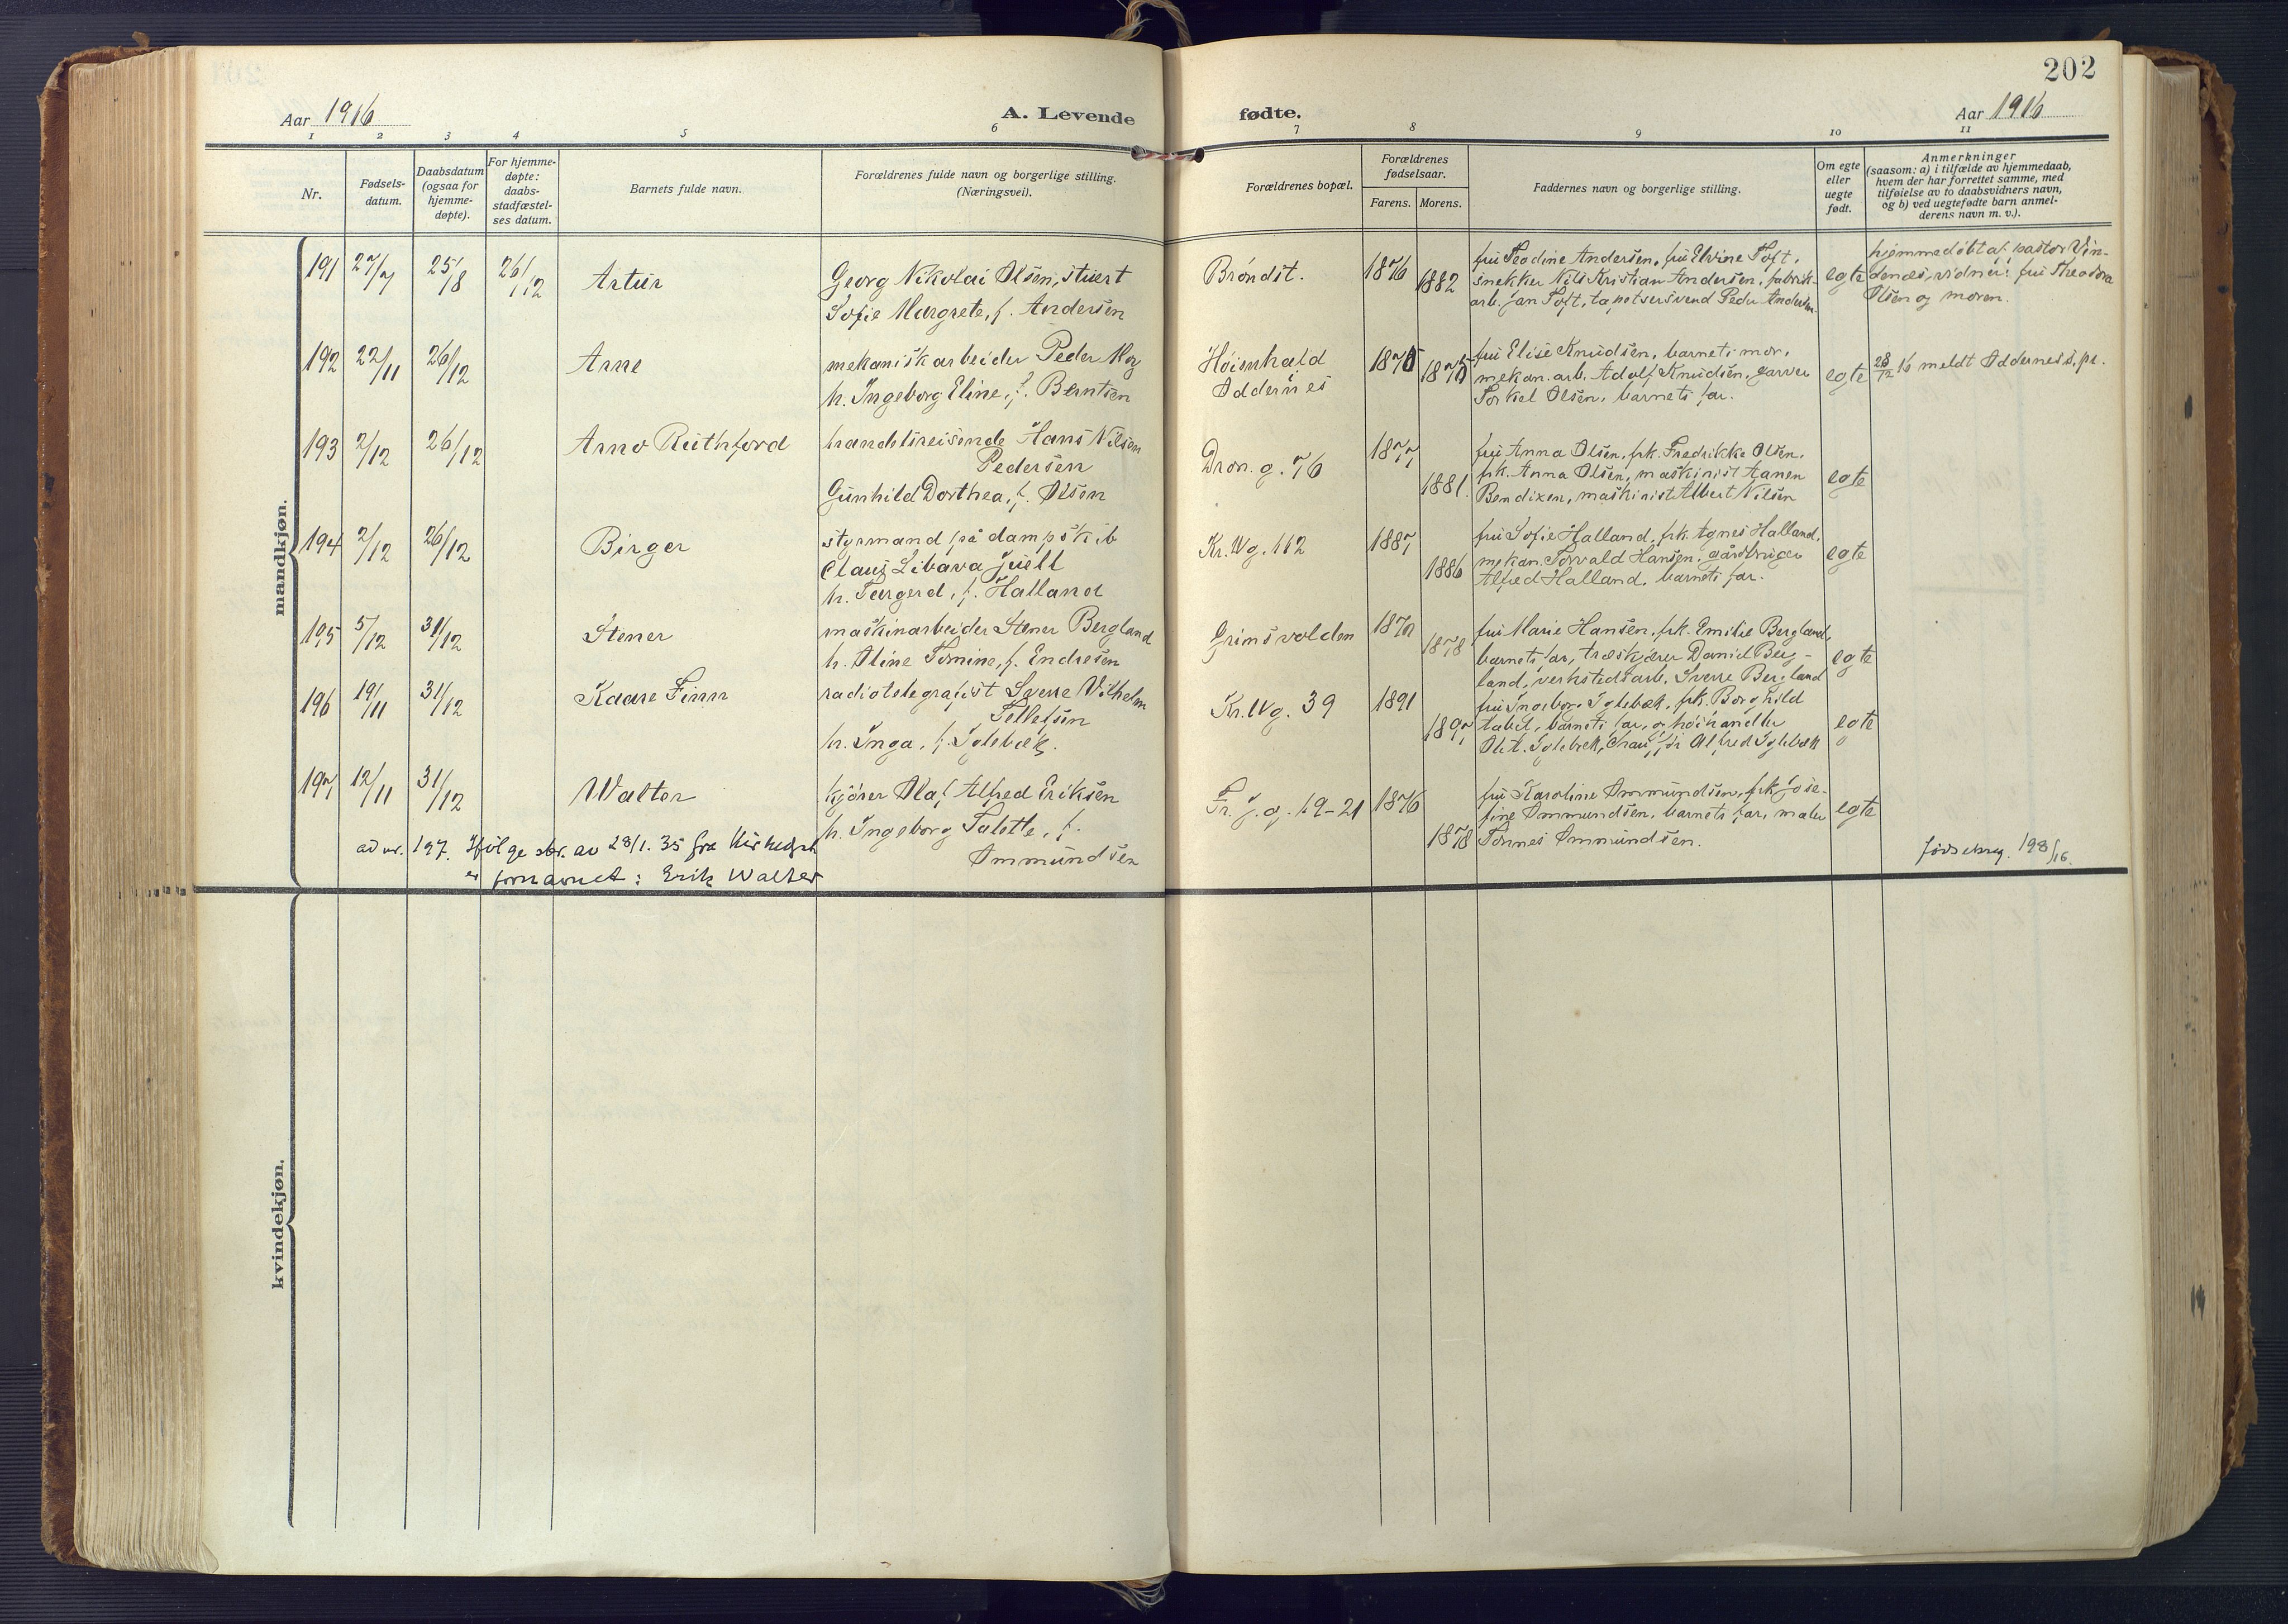 202
Aar 1916
A. Levende
fødte.
Aar 1916
1 2 3 4 5 6 7 8 9 10 11
Nr.
Fødsels-
datum.
Daabsdatum
(ogsaa for
hjemme-
døpte).
For hjemme-
døpte:
daabs-
stadfæstel-
ses datum.
Barnets fulde navn.
Forældrenes fulde navn og borgerlige stilling.
(Næringsvei).
Forældrenes bopæl.
Forældrenes
fødselsaar.
Farens. Morens.
Faddernes navn og borgerlige stilling.
Om egte
eller
uegte
født.
Anmerkninger
(saasom: a) i tilfælde av hjemmedaab,
hvem der har forrettet samme, med
tilføielse av to daabsvidners navn,
og b) ved uegtefødte barn anmel-
derens navn m. v.).
mandkjøn.
191 27/7 25/8 26/12 Artur
Georg Nikolai Olsen, stuert
Sofie Margrete, f. Andersen
Brøndst. 1876 1882
fru Teodine Andersen, fru Elvine Toft,
snekker Nils Kristian Andersen, fabrik-
arb. Jan Toft, tapetsersvend Peder Andersen
egte
hjemmedøbt af pastor Vin-
denæs, vidner: fru Theodora
Olsen og moren.
192 22/11 26/12 Arne
mekanisk arbeider Peder Moy
h. Ingeborg Eline, f. Berntsen
Høienhald
Oddernes
1875 1875
fru Elise Knudsen, barnets mor,
mekan. arb. Adolf Knudsen, garver
Torkel Olsen, barnets far.
egte
28/12 16 meldt Oddernes s.pr.
193 2/12 26/12 Arno Ruthford
handelsreisende Hans Nilsen
Pedersen
Gunhild Dorthea, f. Olsen
Dron. g. 76 1877 1881.
fru Anna Olsen, frk. Fredrikke Olsen,
frk. Anna Olsen, maskinist Aanen
Bendixen, maskinist Albert Nilsen
egte
194 2/12 26/12 Birger
styrmand på dampskib
Claus Libava Juell
h. Targerd, f. Halland
Kr. Wg. 112 1887 1886
fru Sofie Halland, frk. Agnes Halland,
mekan. Torvald Hansen, gårdbruger
Alfred Halland, barnets far.
egte
195 5/12 31/12 Stener
maskinarbeider Stener Bergland
h. Oline Tomine, f. Endresen
Grimsvolden 1878
fru Marie Hansen, frk. Emilie Bergland,
barnets far, træskjærer Daniel Berg-
land, verkstedsarb. Sverre Bergland
egte
196 19/11 31/12 Kaare Finn
radiotelegrafist Sverre Vilhelm
Tellefsen
h. Inga, f. Iglebæk.
Kr. Wg. 39 1891 1897
fru Ingeborg Iglebæk, frk. Borghild
Tabel, barnets far, høihandler
Olit. Iglebæk, Alfred Iglebæk
egte
197 12/11 31/12 Walter
kjører Olaf Alfred Eriksen
h. Ingeborg Talette, f.
Ommundsen
Fr. J. g. 19-21 1876 1878
fru Karoline Ommundsen, frk. Jose-
fine Ommundsen, barnets far, maler
Tønnes Ommundsen.
egte
fødselsreg. 198/16.
ad nr. 197. Ifølge skr. av 28/1. 35 fra Kirkedept.
er fornavnet: Erik Walter
kvindekjøn.